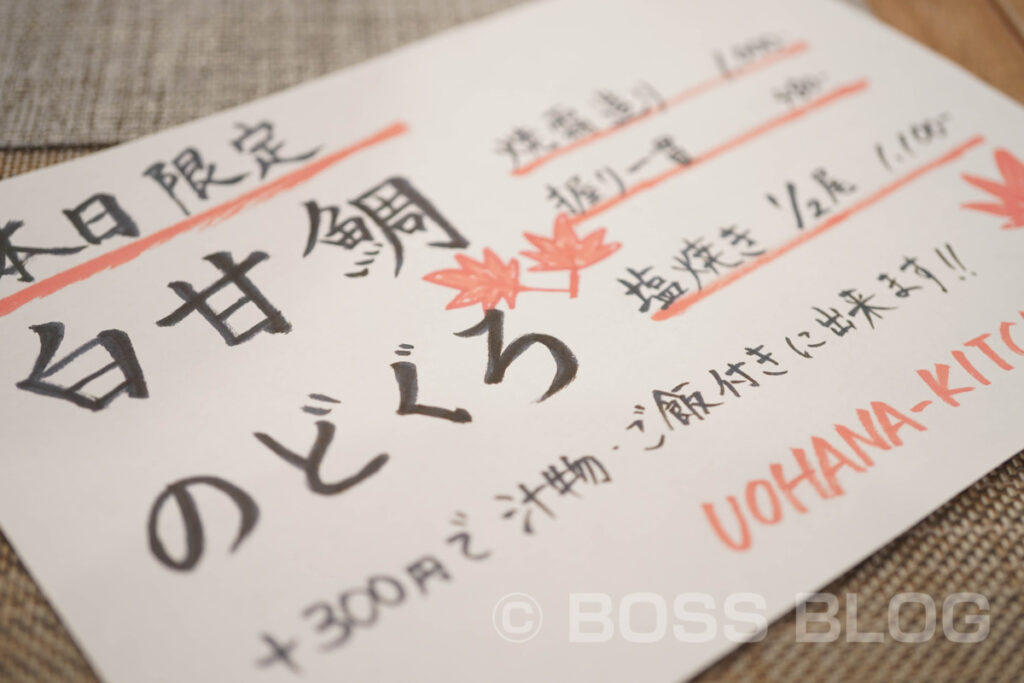 本日限定
白甘鯛
のどぐろ
焼霜造り
握り一貫
塩焼き 1/2尾 1.100-
+300円で汁物・ご飯付きに出来ます!!
UOHANA-KITC
© BOSS BLOG